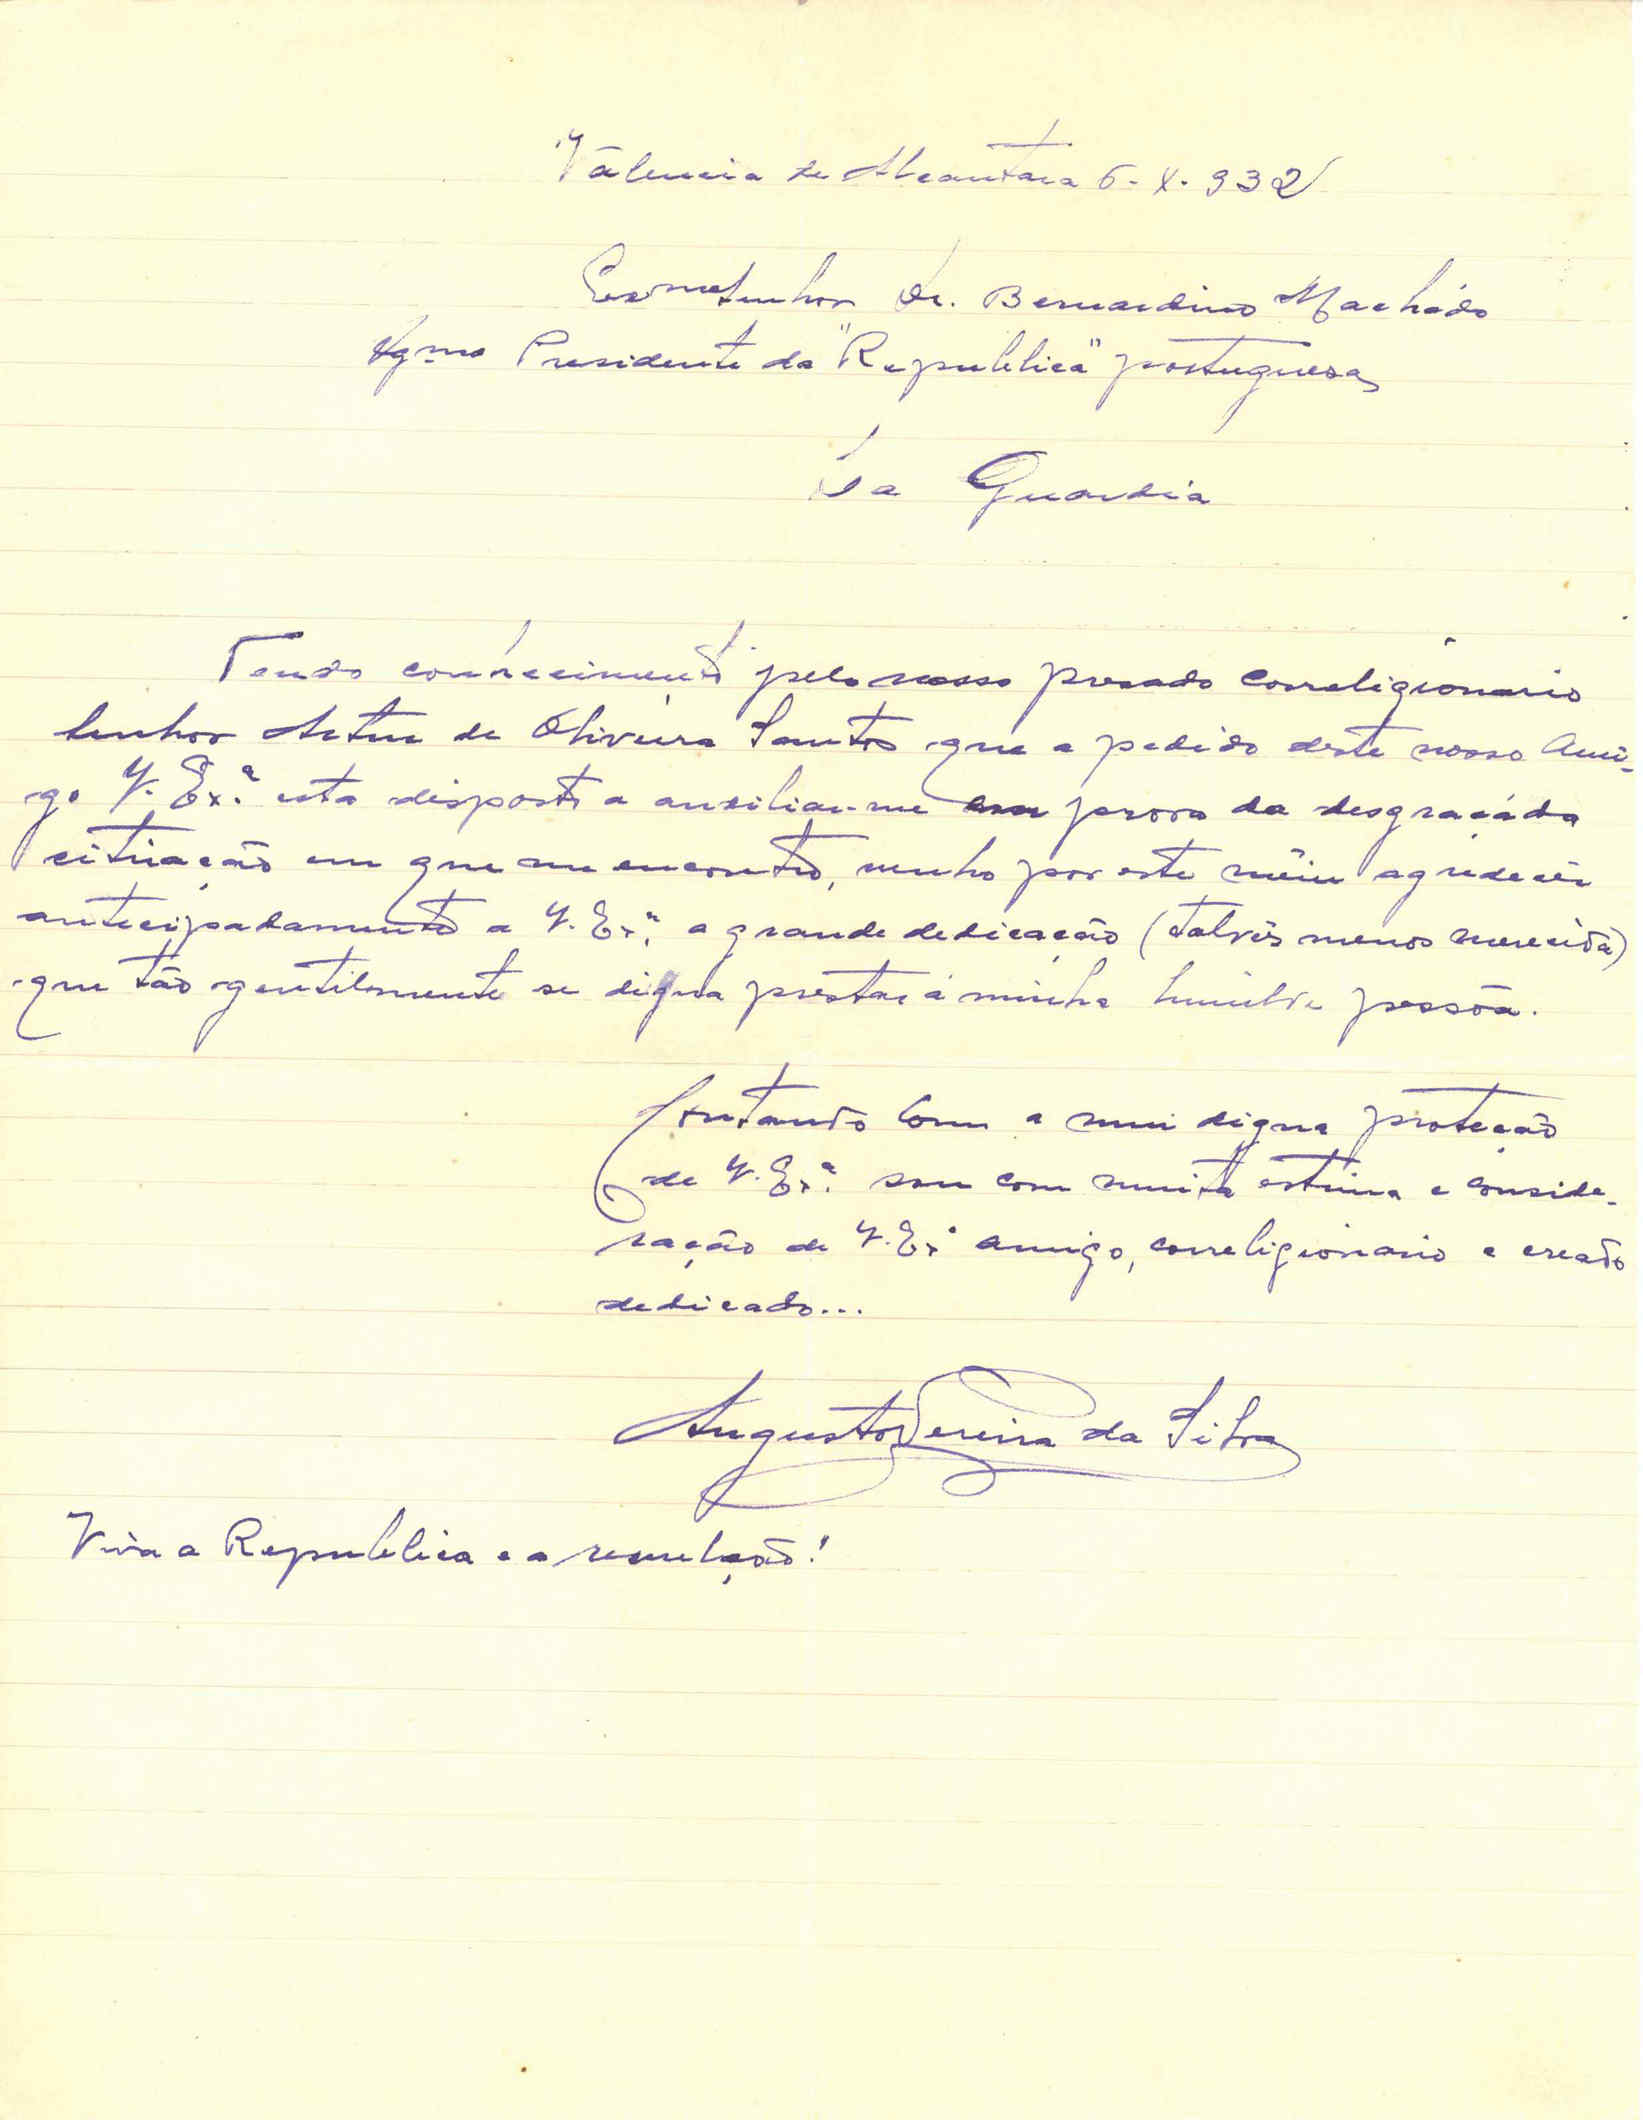 Válencia de Alcantara 6-X-932
Exmo Senhor Dr. Bernardino Machádo
Dgmo Presidente da "Republica" portuguesa
La Guardia
Tendo conhecimento pelo nosso presado correligionario
Senhor Artur de Oliveira Santos que a pedido deste nosso Ami-
go V. Ex.ª esta disposto a auxiliar-me em prova da desgraçáda
cituação em que me encontro, venho por este meiu agradecêr
antecipadamente a V. Ex.ª a grande dedicação (talvês menos merecida)
que tão gentilmente se digna prestar á minha humilde pessôa.
Contando com a mui digna proteção
de V. Ex.ª sou com muita estima e conside-
ração de V. Exª amigo, correligionario e creado
dedicado...
Augusto Pereira da Silva
Viva a Republica e a revolução!